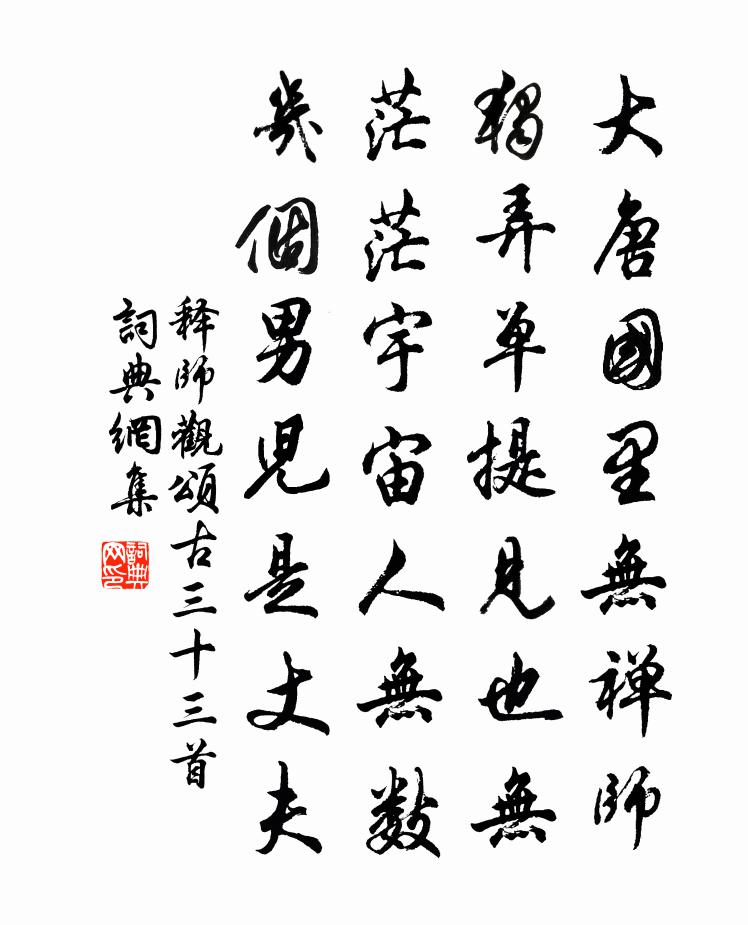 大唐國里無禅師
獨弄单提見也無
茫茫宇宙人無数
幾個男児是丈夫
释師觀頌古三十三首
詞典網集
詞典网印